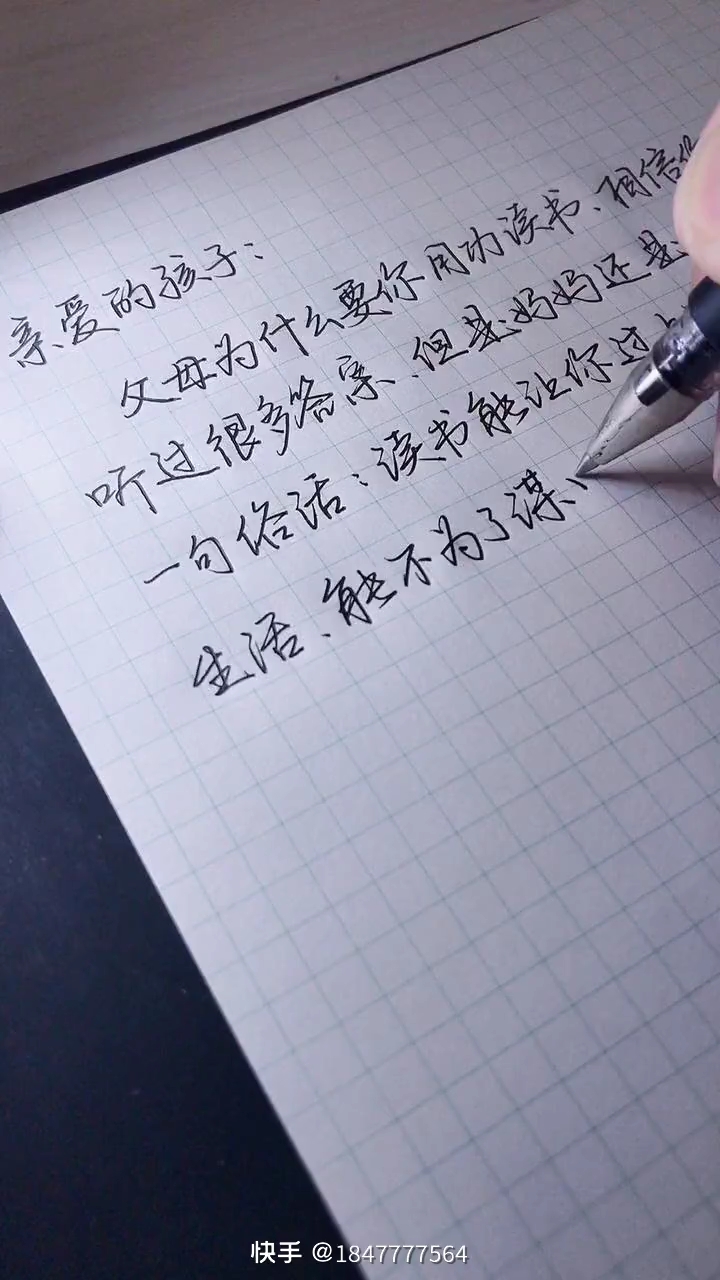 亲爱的孩子：
父母为什么要你用功读书、相信
听过很多答案、但是妈妈还是
一句俗话：读书能让你过
生活、能不为了谋
快手 @1847777564